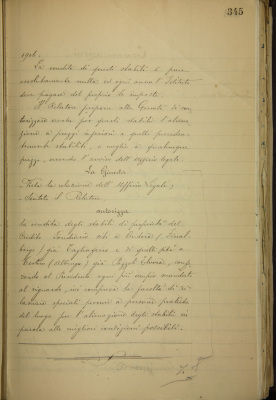 345
1906.
La rendita di questi stabili è pure
nulla ed ogni anno l'Istituto
deve pagare del proprio le imposte.
Il Relatore propone alla Giunta di au-
torizzare anche per questi stabili l'aliena-
zione a prezzi inferiori a quelli preceden-
temente stabiliti, o meglio a qualunque
prezzo, secondo l'avviso dell'Ufficio legale.
La Giunta
Vista la relazione dell'Ufficio Legale;
Sentito il Relatore
autorizza
la vendita degli stabili di proprietà del
Credito fondiario siti a
già Tagliaferro e di quelli siti a
(Albenga) già confe-
rendo al Presidente ogni più ampio mandato
al riguardo, ivi compresa la facoltà di ri-
lasciare speciali procure a persone pratiche
del luogo per l'alienazione degli stabili in
parola alle migliori condizioni possibili.